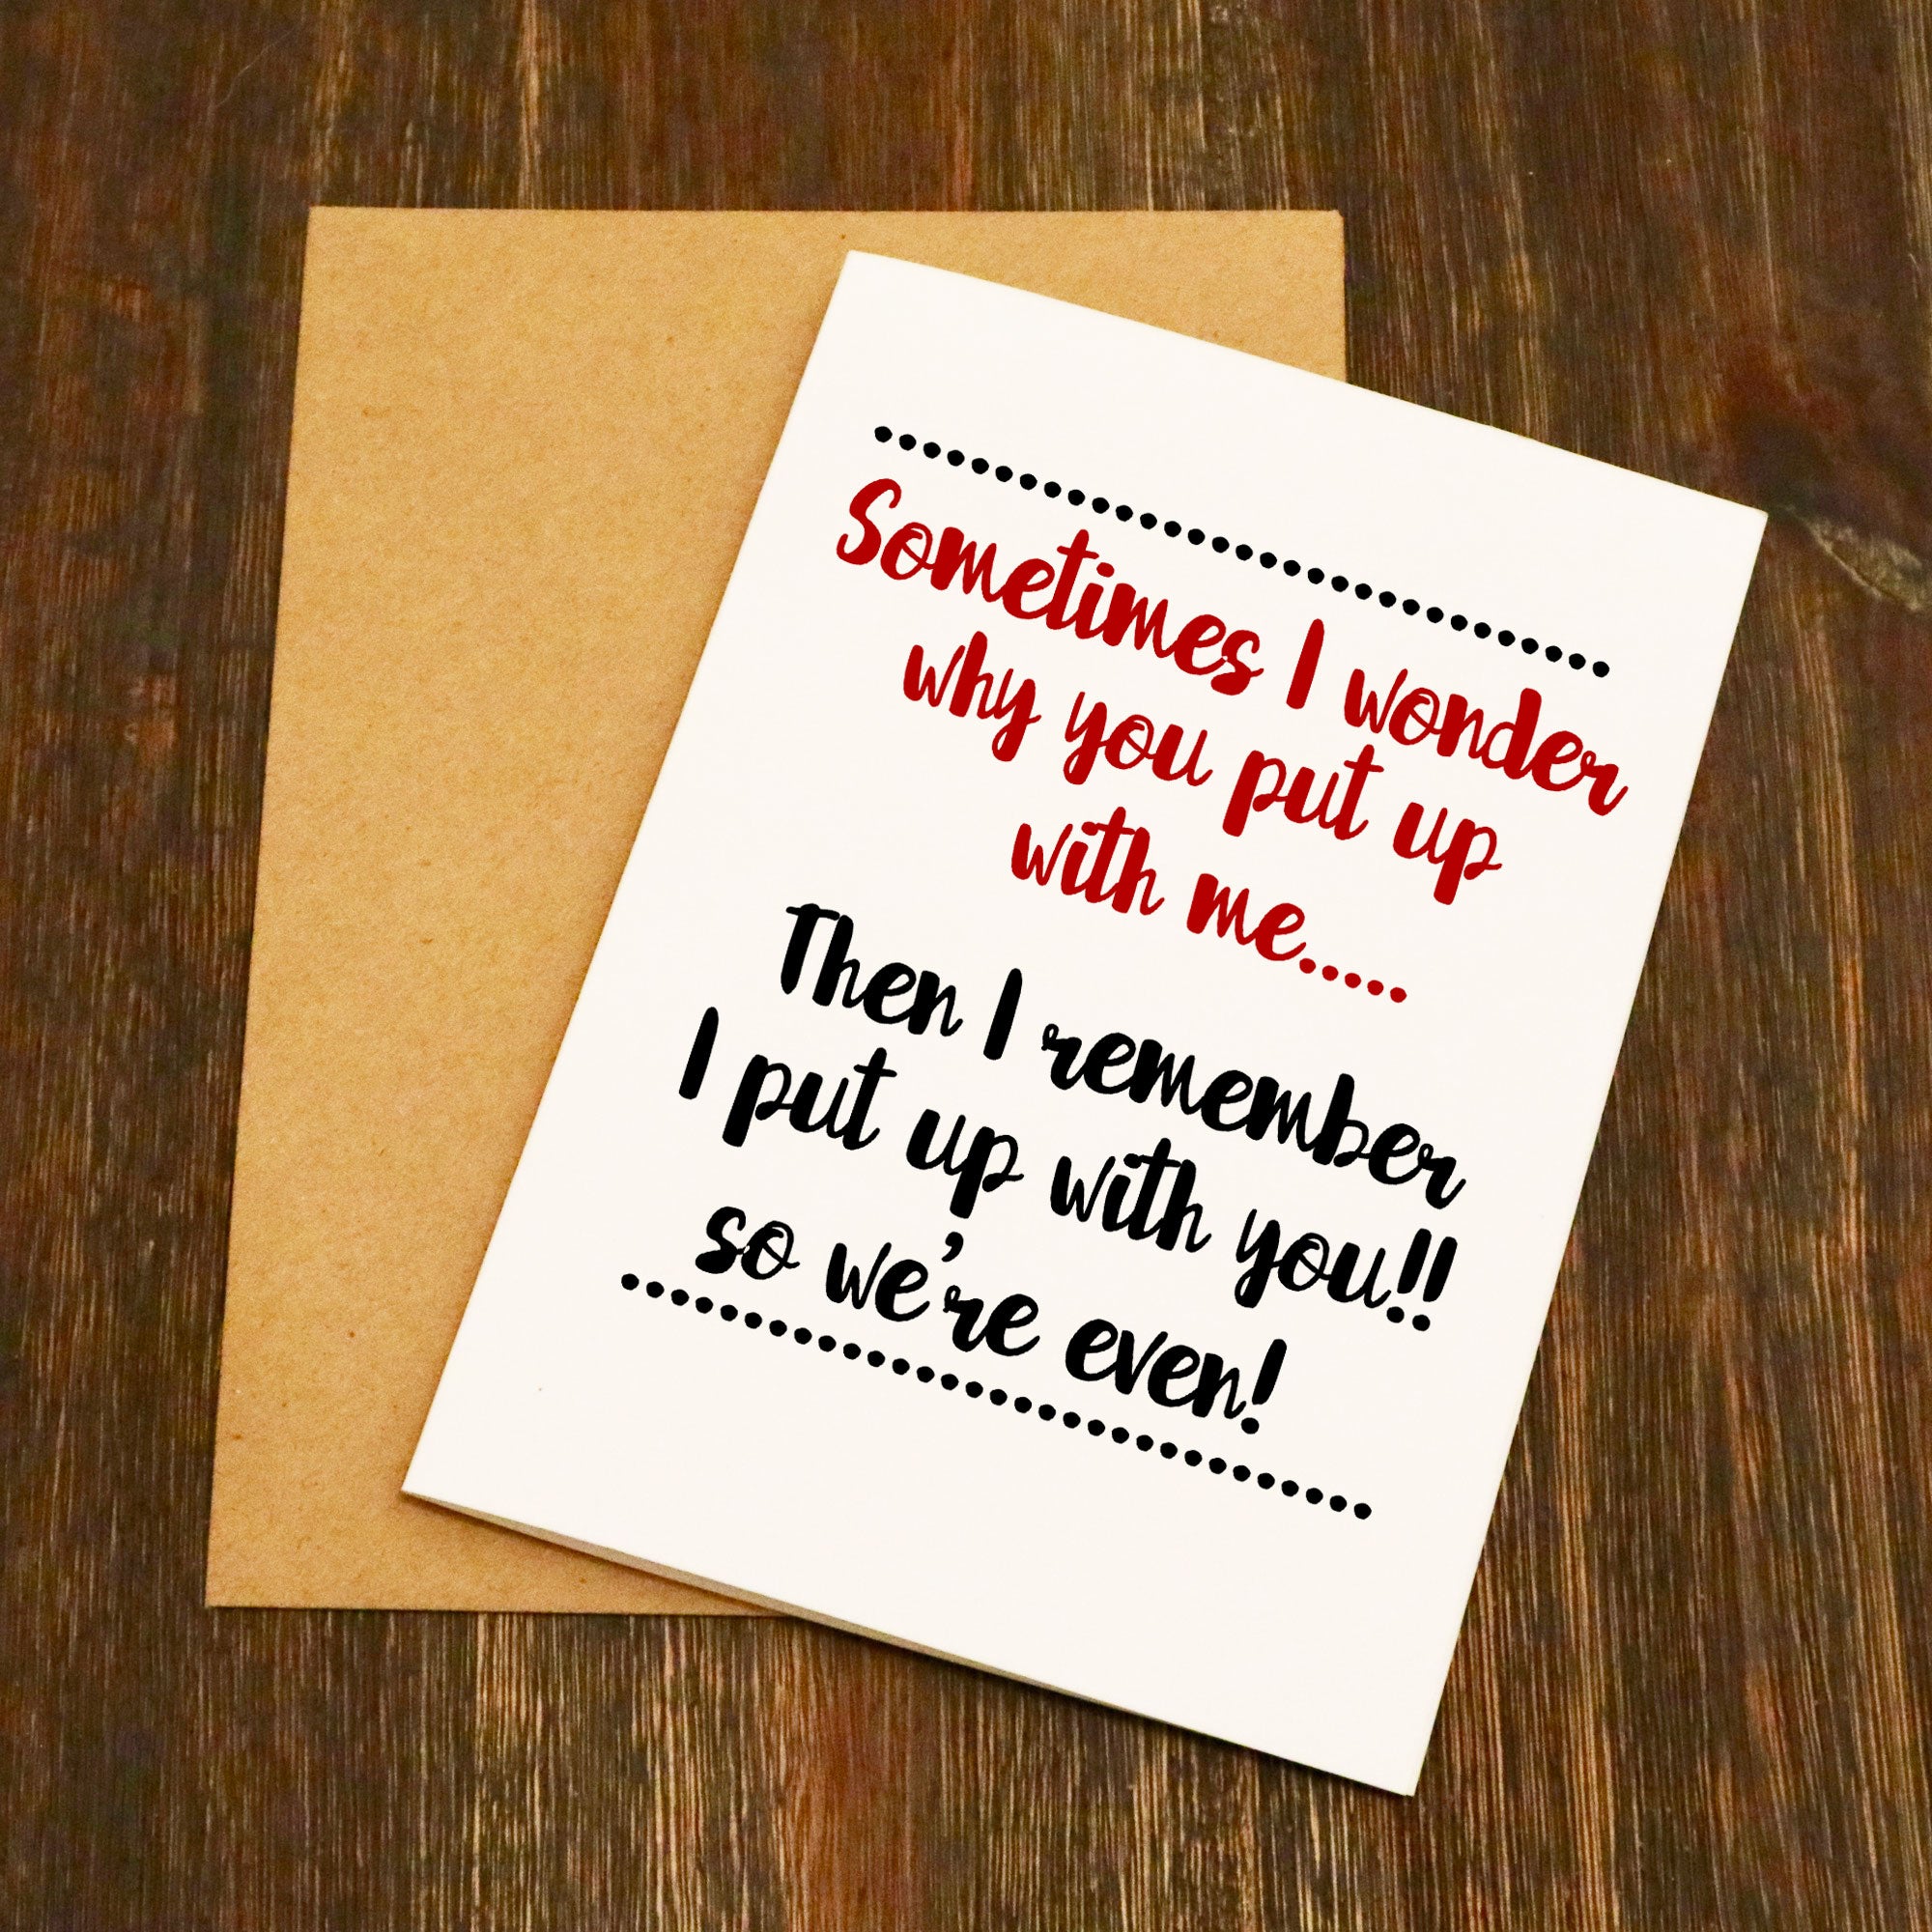 Sometimes I wonder
why you put up
with me.....
Then I remember
I put up with you!!
so we're even!